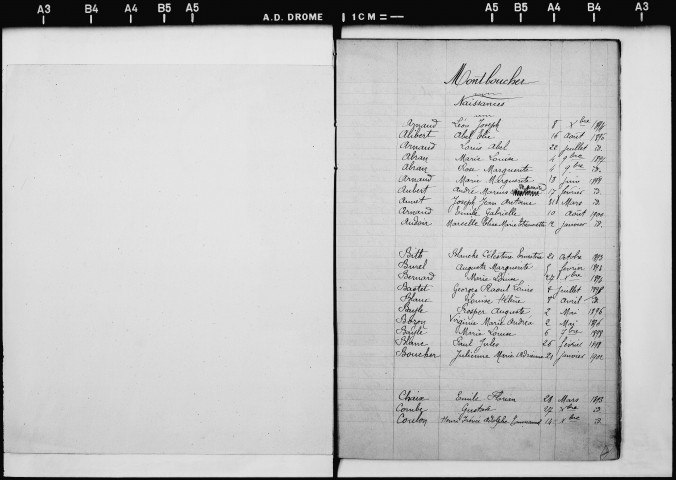 A3 B4 A4 B5 A5 A.D. DROME 1CM = A5 B5 A4 B4 A3
Montboucher
Naissances
Arnaud Léon Joseph 8 Xbre
Alibert Abel Elie 16 Août 1896
Arnaud Louis Abel 22 Juillet D.
Abran Marie Louise 4 9bre
Abran Rose Marguerite 4 9bre D.
Arnaud Marie Marguerite 13 Juin
Aubert André Marius 17 février D.
Annet Joseph Jean Antoine 31 Mars D.
Arnaud Emile Gabrielle 10 Août 1900
Audoir Marcelle Marie 2 Janvier D.
Blanche Célestine Ernestine 21 Octobre 1893
Burel Auguste Marguerite 5 février 1893
Bernard Marie Louise 27 Xbre
Bastet Georges Raoul Louis 4 Juillet
Blanc Louise Hélène 8 Avril D.
Bayle Prosper Auguste 2 Mai 1896
Virginie Marie Andréa 2 Mai 1896
Bayle Marie Louise 6 7bre
Blanc Paul Jules 26 février
Boucher Julienne Marie Adrienne 21 Janvier
Chaix Emile Florian 28 Mars 1893
Combe Gustave 27 Xbre D.
Coulon Henri Adolphe Emmanuel 14 Xbre D.